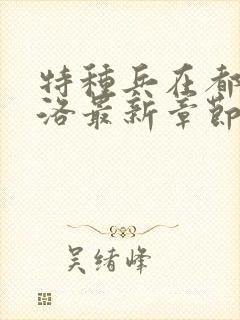 特種兵在都
洛最新章節
吴绪峰